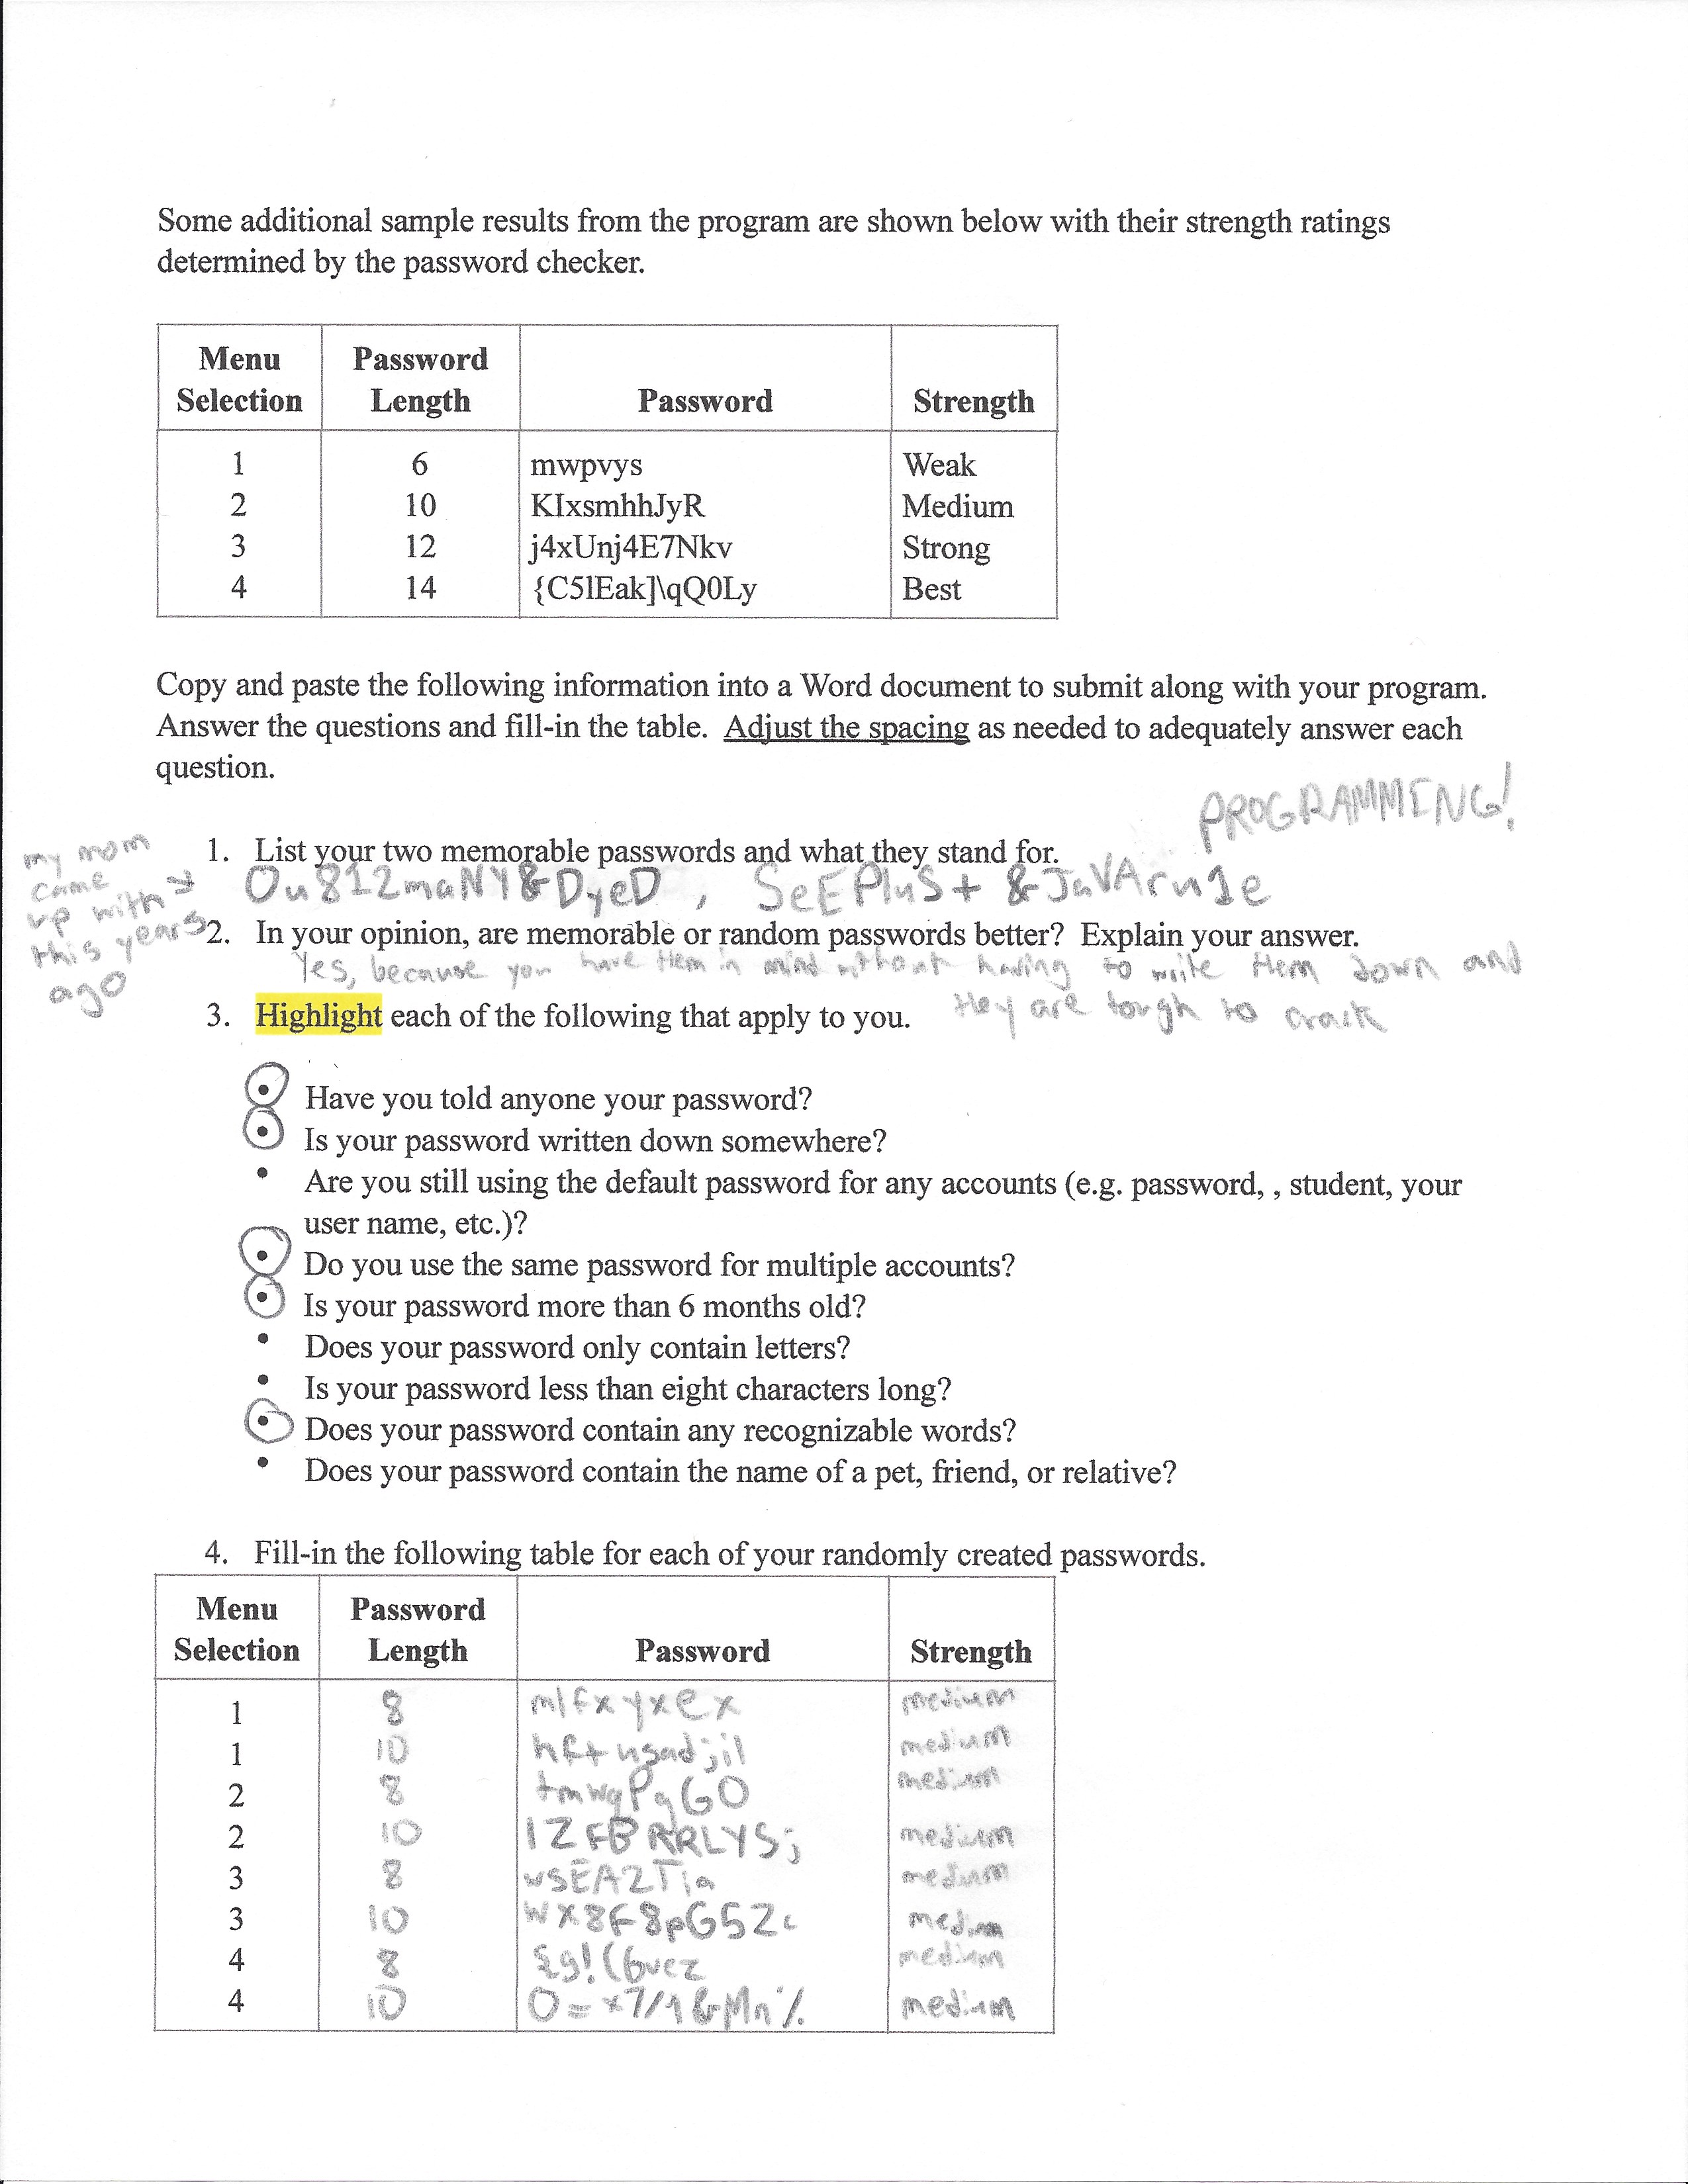 Some additional sample results from the program are shown below with their strength ratings
determined by the password checker.
Menu Selection Password Length Password Strength
1 6 mwpvys Weak
2 10 KIxsmhhJyR Medium
3 12 j4xUnj4E7Nkv Strong
4 14 {C5lEak]\qQ0Ly Best
Copy and paste the following information into a Word document to submit along with your program.
Answer the questions and fill-in the table. Adjust the spacing as needed to adequately answer each
question.
PROGRAMMING!
my mom
came
up with →
this years
ago
1. List your two memorable passwords and what they stand for.
Ou812maNY&DyeD , SeEPluS+ &JaVAru1e
2. In your opinion, are memorable or random passwords better? Explain your answer.
Yes, because you have them in mind without having to write them down and
they are tough to crack
3. Highlight each of the following that apply to you.
• Have you told anyone your password?
• Is your password written down somewhere?
• Are you still using the default password for any accounts (e.g. password, , student, your
user name, etc.)?
• Do you use the same password for multiple accounts?
• Is your password more than 6 months old?
• Does your password only contain letters?
• Is your password less than eight characters long?
• Does your password contain any recognizable words?
• Does your password contain the name of a pet, friend, or relative?
4. Fill-in the following table for each of your randomly created passwords.
Menu Selection Password Length Password Strength
1 8 mlfxyxex medium
1 10 medium
2 8 medium
2 10 medium
3 8 wSEA2Tia medium
3 10 WX8F8pG5Zc medium
4 8 medium
4 10 medium